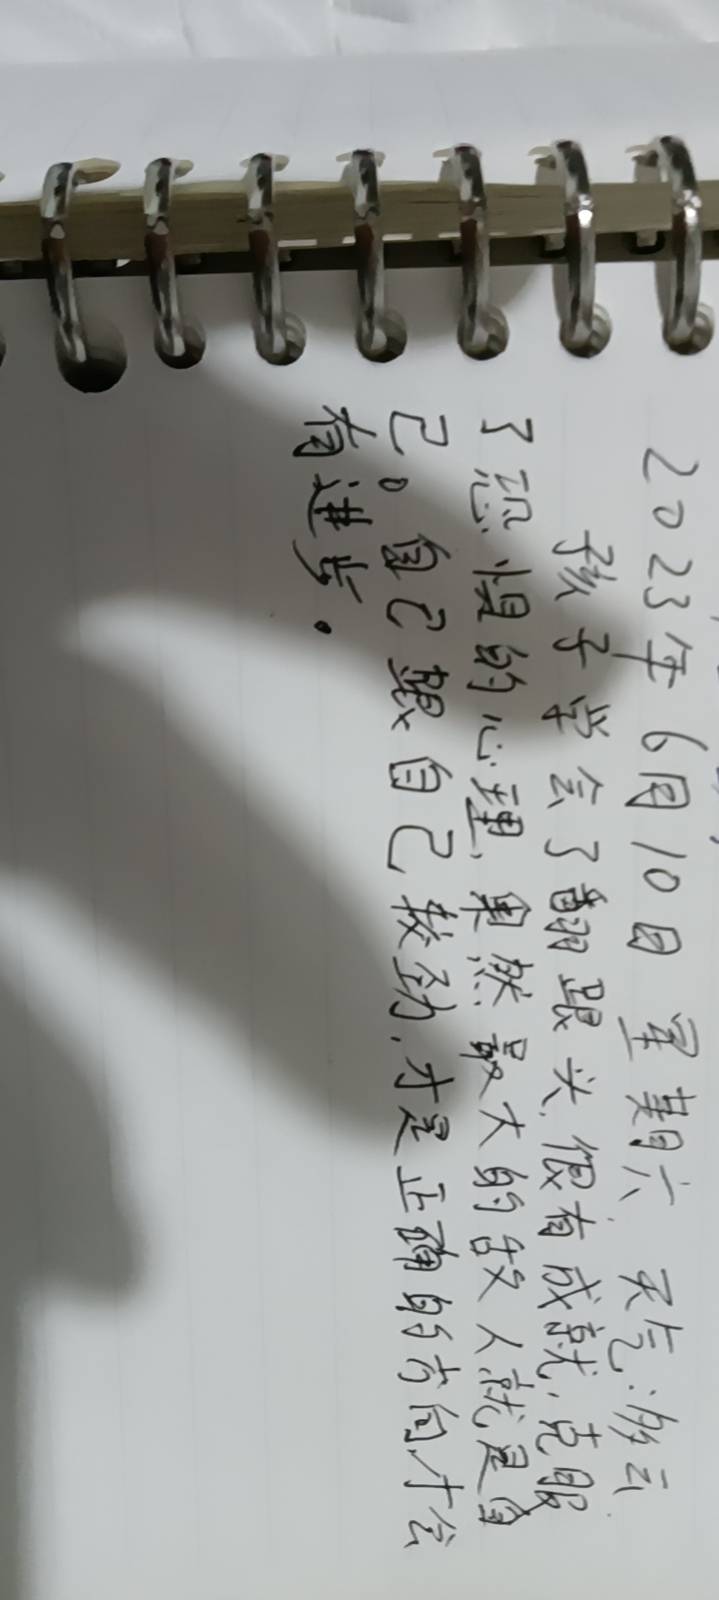 2023年6月10日 星期六 天气:多云
孩子学会了翻跟头,很有成就,克服
了恐惧的心理,果然最大的敌人就是自
己。自己跟自己较劲,才是正确的方向,才会
有进步.